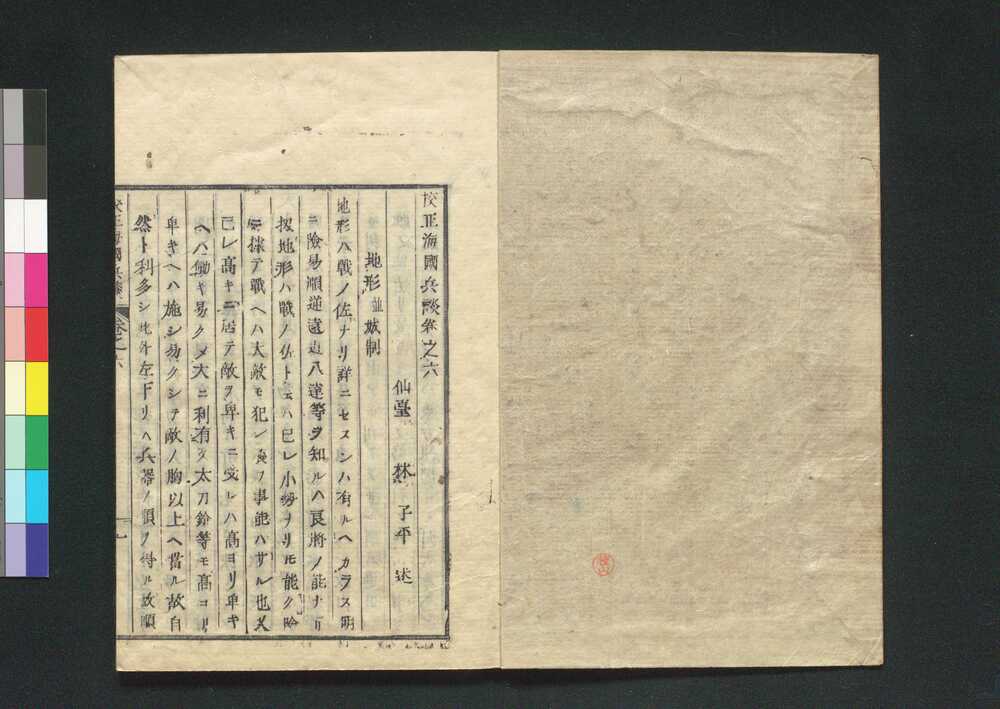 校正海國兵談卷之六
仙臺 林 子平 述
地形並城制
地形ハ戰ノ佐ナリ詳ニセスンハ有ルヘカラス明
ニ險易順逆遠近八達等ヲ知ルハ良將ノ能ナリ
扨地形ハ戰ノ佐ト云ハ已レ小勢ナリ𪜈能ク險
ニ據テ戰ヘハ大敵モ犯シ凌フ事能ハサル也又
己レ高キニ居テ敵ヲ卑キニ受ルハ高ヨリ卑キ
ヘハ働キ易クメ大ニ利有タ太刀鎗等モ高ヨリ
卑キヘハ施シ易クシテ敵ノ胸以上ヘ當ル故自
然ト利多シ此外左下リハ兵器ノ順ヲ得ル故順
校正海國兵談
卷之六